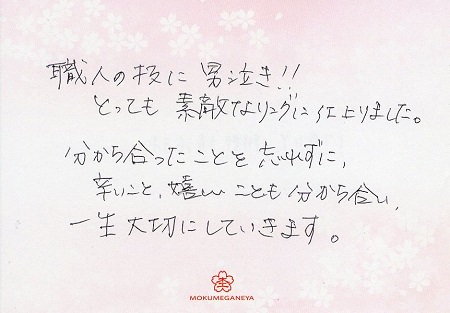 職人の技に 男泣き!!
とっても 素敵なリングに仕上りました。
分から合ったことを 忘れずに、
辛いこと、嬉しいことも 分から合い、
一生 大切にしていきます。
MOKUMEGANEYA